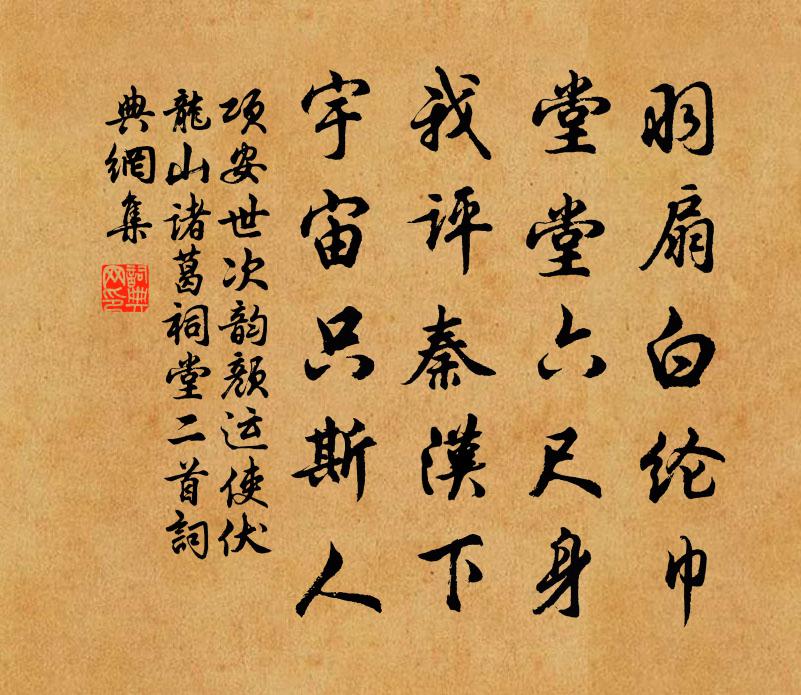 羽扇白纶巾
堂堂六尺身
我评秦汉下
宇宙只斯人
项安世次韵颜运使伏
龍山诸葛祠堂二首詞
典網集
詞典
网印